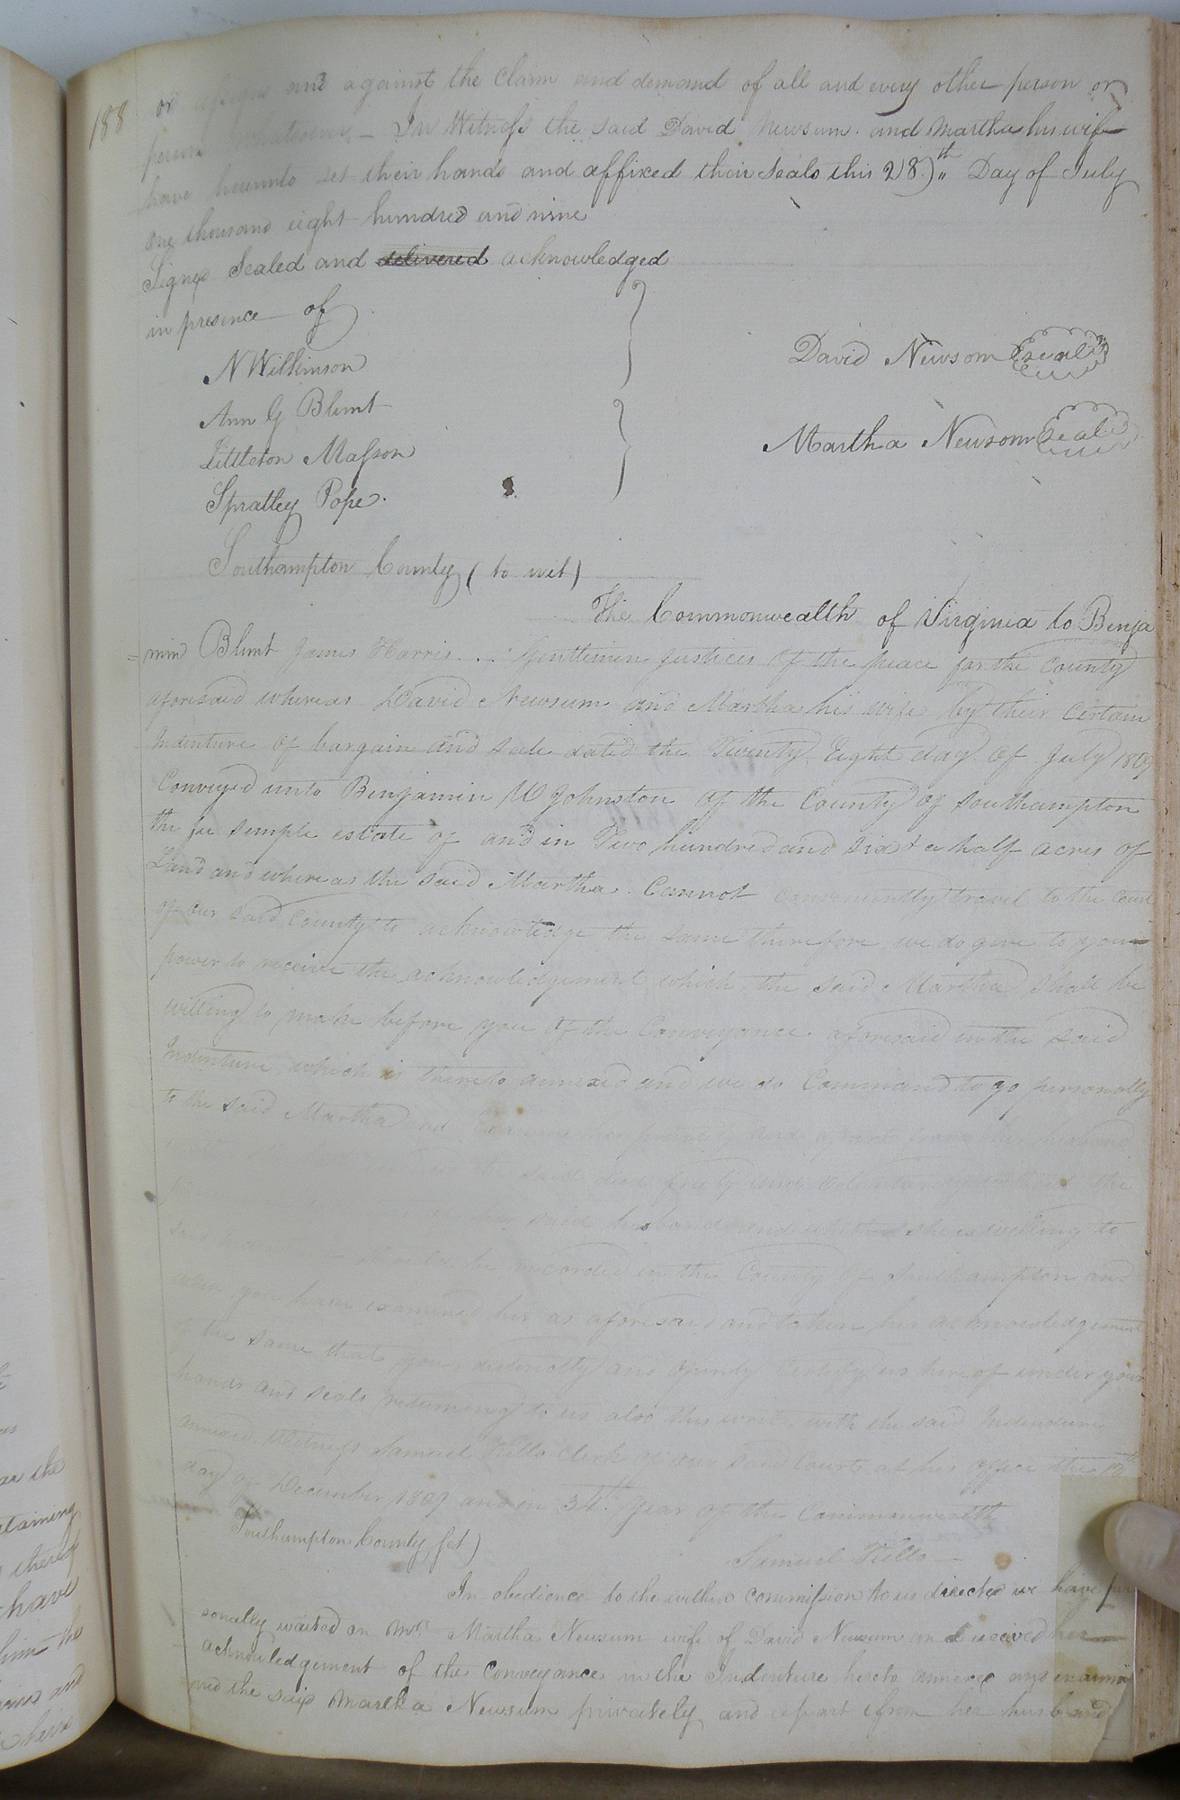 188
or assigns and against the Claim and demand of all and every other person or
persons whatsoever – In Witness the said David Newsum and Martha his wife
have hereunto set their hands and affixed their Seals this 28)th Day of July
one thousand eight hundred and nine
Signed Sealed and delivered acknowledged
in presence of
N Wilkinson
Ann G Blunt
Littleton Masson
Spratley Pope.
David Newsom seal
Martha Newsom seal
Southampton County (to wit)
The Commonwealth of Virginia to Benja
=min Blunt James Harris Gentlemen Justices of the peace for the County
aforesaid whereas David Newsum and Martha his wife by their Certain
Indenture of bargain and sale dated the Twenty Eight day of July 1809
Conveyed unto Benjamin W Johnston of the County of Southampton
the fee simple estate of and in Two hundred and Six & a half acres of
Land and whereas the said Martha Cannot conveniently travel to the Court
of our said County to acknowledge the same therefore we do give to you
power to receive the acknowledgement which the said Martha shall be
willing to make before you of the Conveyance aforesaid in the said
Indenture which is thereto annexed and we do Command to go personally
to the said Martha and examine her privately and apart from her husband
said deed freely and voluntarily without the
her said husband and whether she is willing to
should be recorded in the County of Southampton and
when you have examined her as aforesaid and taken her acknowledgement
of the same that you distinctly and openly Certify us hereof under your
hands and seals returning to us also this writ with the said Indenture
annexed Witness Samuel Kello Clerk of our said Court at his office the
day of December 1809 and in 34th year of the Commonwealth
Samuel Kello
Southampton County sct)
In obedience to the within commission to us directed we have per
sonally waited on Mrs Martha Newsum wife of David Newsum and received her
acknowledgement of the Conveyance in the Indenture hereto annexed and exami
ned the said Martha Newsum privately and apart from her husband
ar the
taining
thereof
have
him the
and
heirs